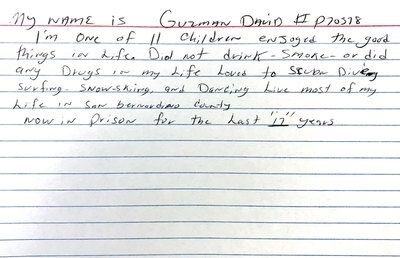 My NAME is Guzman David # P70378
I'm ONE of 11 Children enjoyed the good
things in Life. Did not drink - Smoke - or did
any Drugs in my Life Loved to Scuba Diving
surfing. Snow-skiing, and Dancing Live most of my
Life in San bernardino county
NOW in Prison for the Last "17" years